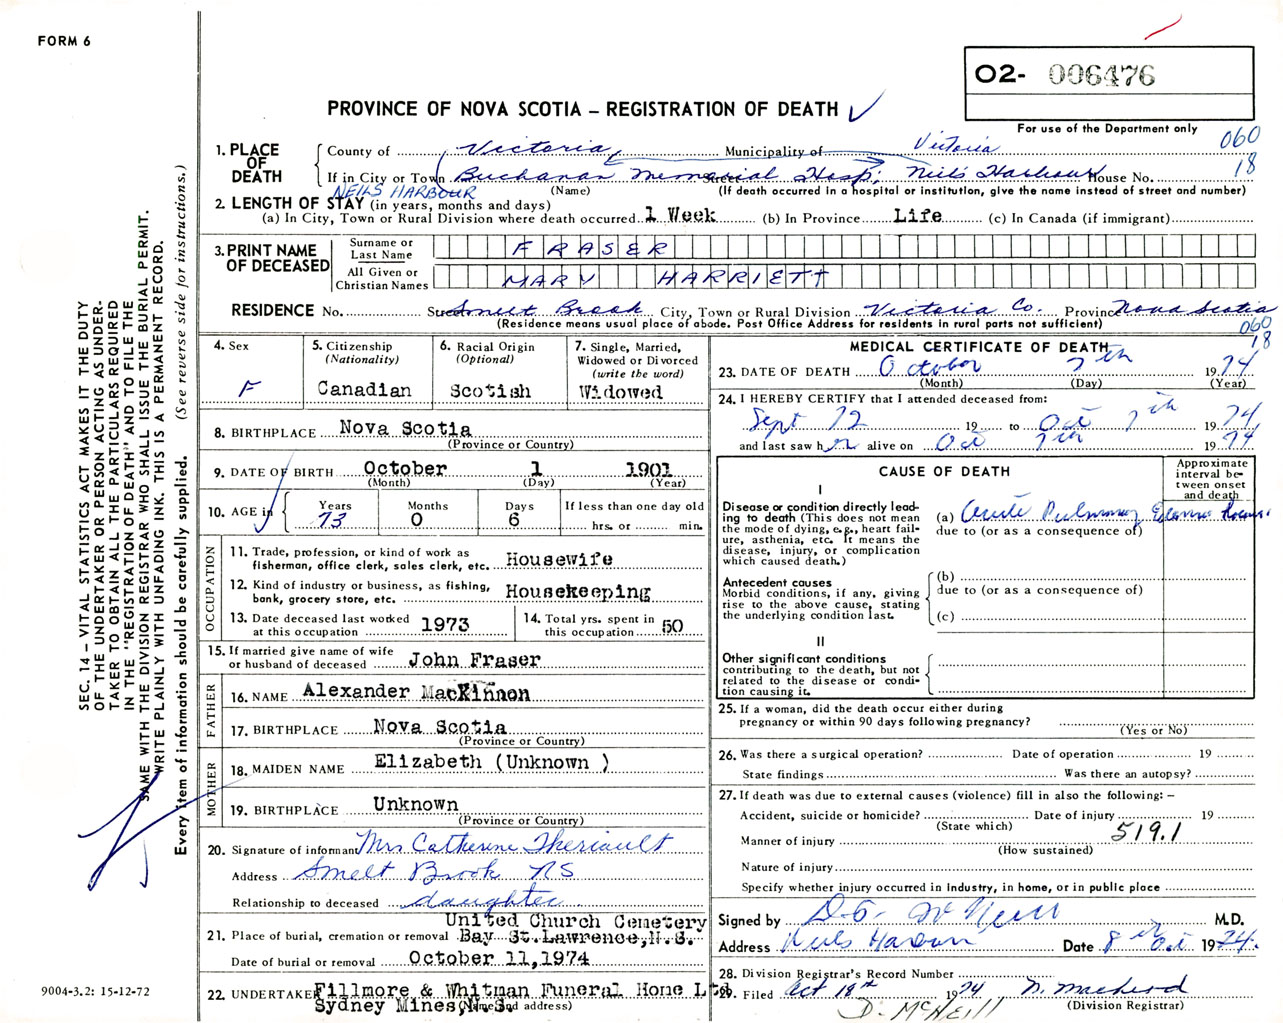 FORM 6
O2- 006476
PROVINCE OF NOVA SCOTIA – REGISTRATION OF DEATH ✓
For use of the Department only
060
18
1. PLACE OF DEATH
County of Victoria, Municipality of Victoria
If in City or Town Buchanan Memorial Hosp; Neils Harbour House No.
NEILS HARBOUR
(Name) (If death occurred in a hospital or institution, give the name instead of street and number)
2. LENGTH OF STAY (in years, months and days)
(a) In City, Town or Rural Division where death occurred 1 Week (b) In Province Life (c) In Canada (if immigrant)
3. PRINT NAME OF DECEASED
Surname or Last Name FRASER
All Given or Christian Names MARY HARRIETT
RESIDENCE No. Street Smelt Brook City, Town or Rural Division Victoria Co. Province Nova Scotia
(Residence means usual place of abode. Post Office Address for residents in rural parts not sufficient)
060
18
4. Sex
F
5. Citizenship
(Nationality)
Canadian
6. Racial Origin
(Optional)
Scotish
7. Single, Married,
Widowed or Divorced
(write the word)
Widowed
8. BIRTHPLACE Nova Scotia
(Province or Country)
9. DATE OF BIRTH October 1 1901
(Month) (Day) (Year)
10. AGE in
Years Months Days If less than one day old
73 0 6 hrs. or min.
OCCUPATION
11. Trade, profession, or kind of work as
fisherman, office clerk, sales clerk, etc. Housewife
12. Kind of industry or business, as fishing,
bank, grocery store, etc. Housekeeping
13. Date deceased last worked
at this occupation 1973
14. Total yrs. spent in
this occupation 50
15. If married give name of wife
or husband of deceased John Fraser
FATHER
16. NAME Alexander MacKinnon
17. BIRTHPLACE Nova Scotia
(Province or Country)
MOTHER
18. MAIDEN NAME Elizabeth (Unknown )
19. BIRTHPLACE Unknown
(Province or Country)
20. Signature of informant Mrs Catherine Theriault
Address Smelt Brook NS
Relationship to deceased daughter
21. Place of burial, cremation or removal United Church Cemetery
Bay St. Lawrence, N.S.
Date of burial or removal October 11, 1974
22. UNDERTAKER Fillmore & Whitman Funeral Home Ltd
Sydney Mines, N.S.
(Name and address)
MEDICAL CERTIFICATE OF DEATH
23. DATE OF DEATH October 7th 1974
(Month) (Day) (Year)
24. I HEREBY CERTIFY that I attended deceased from:
Sept 12 19 to Oct 7th 1974
and last saw her alive on Oct 7th 1974
CAUSE OF DEATH
Approximate
interval be-
tween onset
and death
I
Disease or condition directly lead-
ing to death (This does not mean
the mode of dying, e.g., heart fail-
ure, asthenia, etc. It means the
disease, injury, or complication
which caused death.)
(a) Acute Pulmonary Edema hours
due to (or as a consequence of)
Antecedent causes
Morbid conditions, if any, giving
rise to the above cause, stating
the underlying condition last.
(b)
due to (or as a consequence of)
(c)
II
Other significant conditions
contributing to the death, but not
related to the disease or condi-
tion causing it.
25. If a woman, did the death occur either during
pregnancy or within 90 days following pregnancy?
(Yes or No)
26. Was there a surgical operation? Date of operation 19
State findings Was there an autopsy?
27. If death was due to external causes (violence) fill in also the following: –
Accident, suicide or homicide? Date of injury 19
(State which)
519.1
Manner of injury
(How sustained)
Nature of injury
Specify whether injury occurred in Industry, in home, or in public place
Signed by M.D.
Address Neils Harbour Date 8th Oct 1974.
28. Division Registrar's Record Number
29. Filed Oct 18th 1974 N. MacLeod
(Division Registrar)
D. McNEILL
SEC. 14 – VITAL STATISTICS ACT MAKES IT THE DUTY
OF THE UNDERTAKER OR PERSON ACTING AS UNDER-
TAKER TO OBTAIN ALL THE PARTICULARS REQUIRED
IN THE "REGISTRATION OF DEATH" AND TO FILE THE
SAME WITH THE DIVISION REGISTRAR WHO SHALL ISSUE THE BURIAL PERMIT.
WRITE PLAINLY WITH UNFADING INK. THIS IS A PERMANENT RECORD.
Every item of information should be carefully supplied. (See reverse side for instructions.)
9004-3.2: 15-12-72